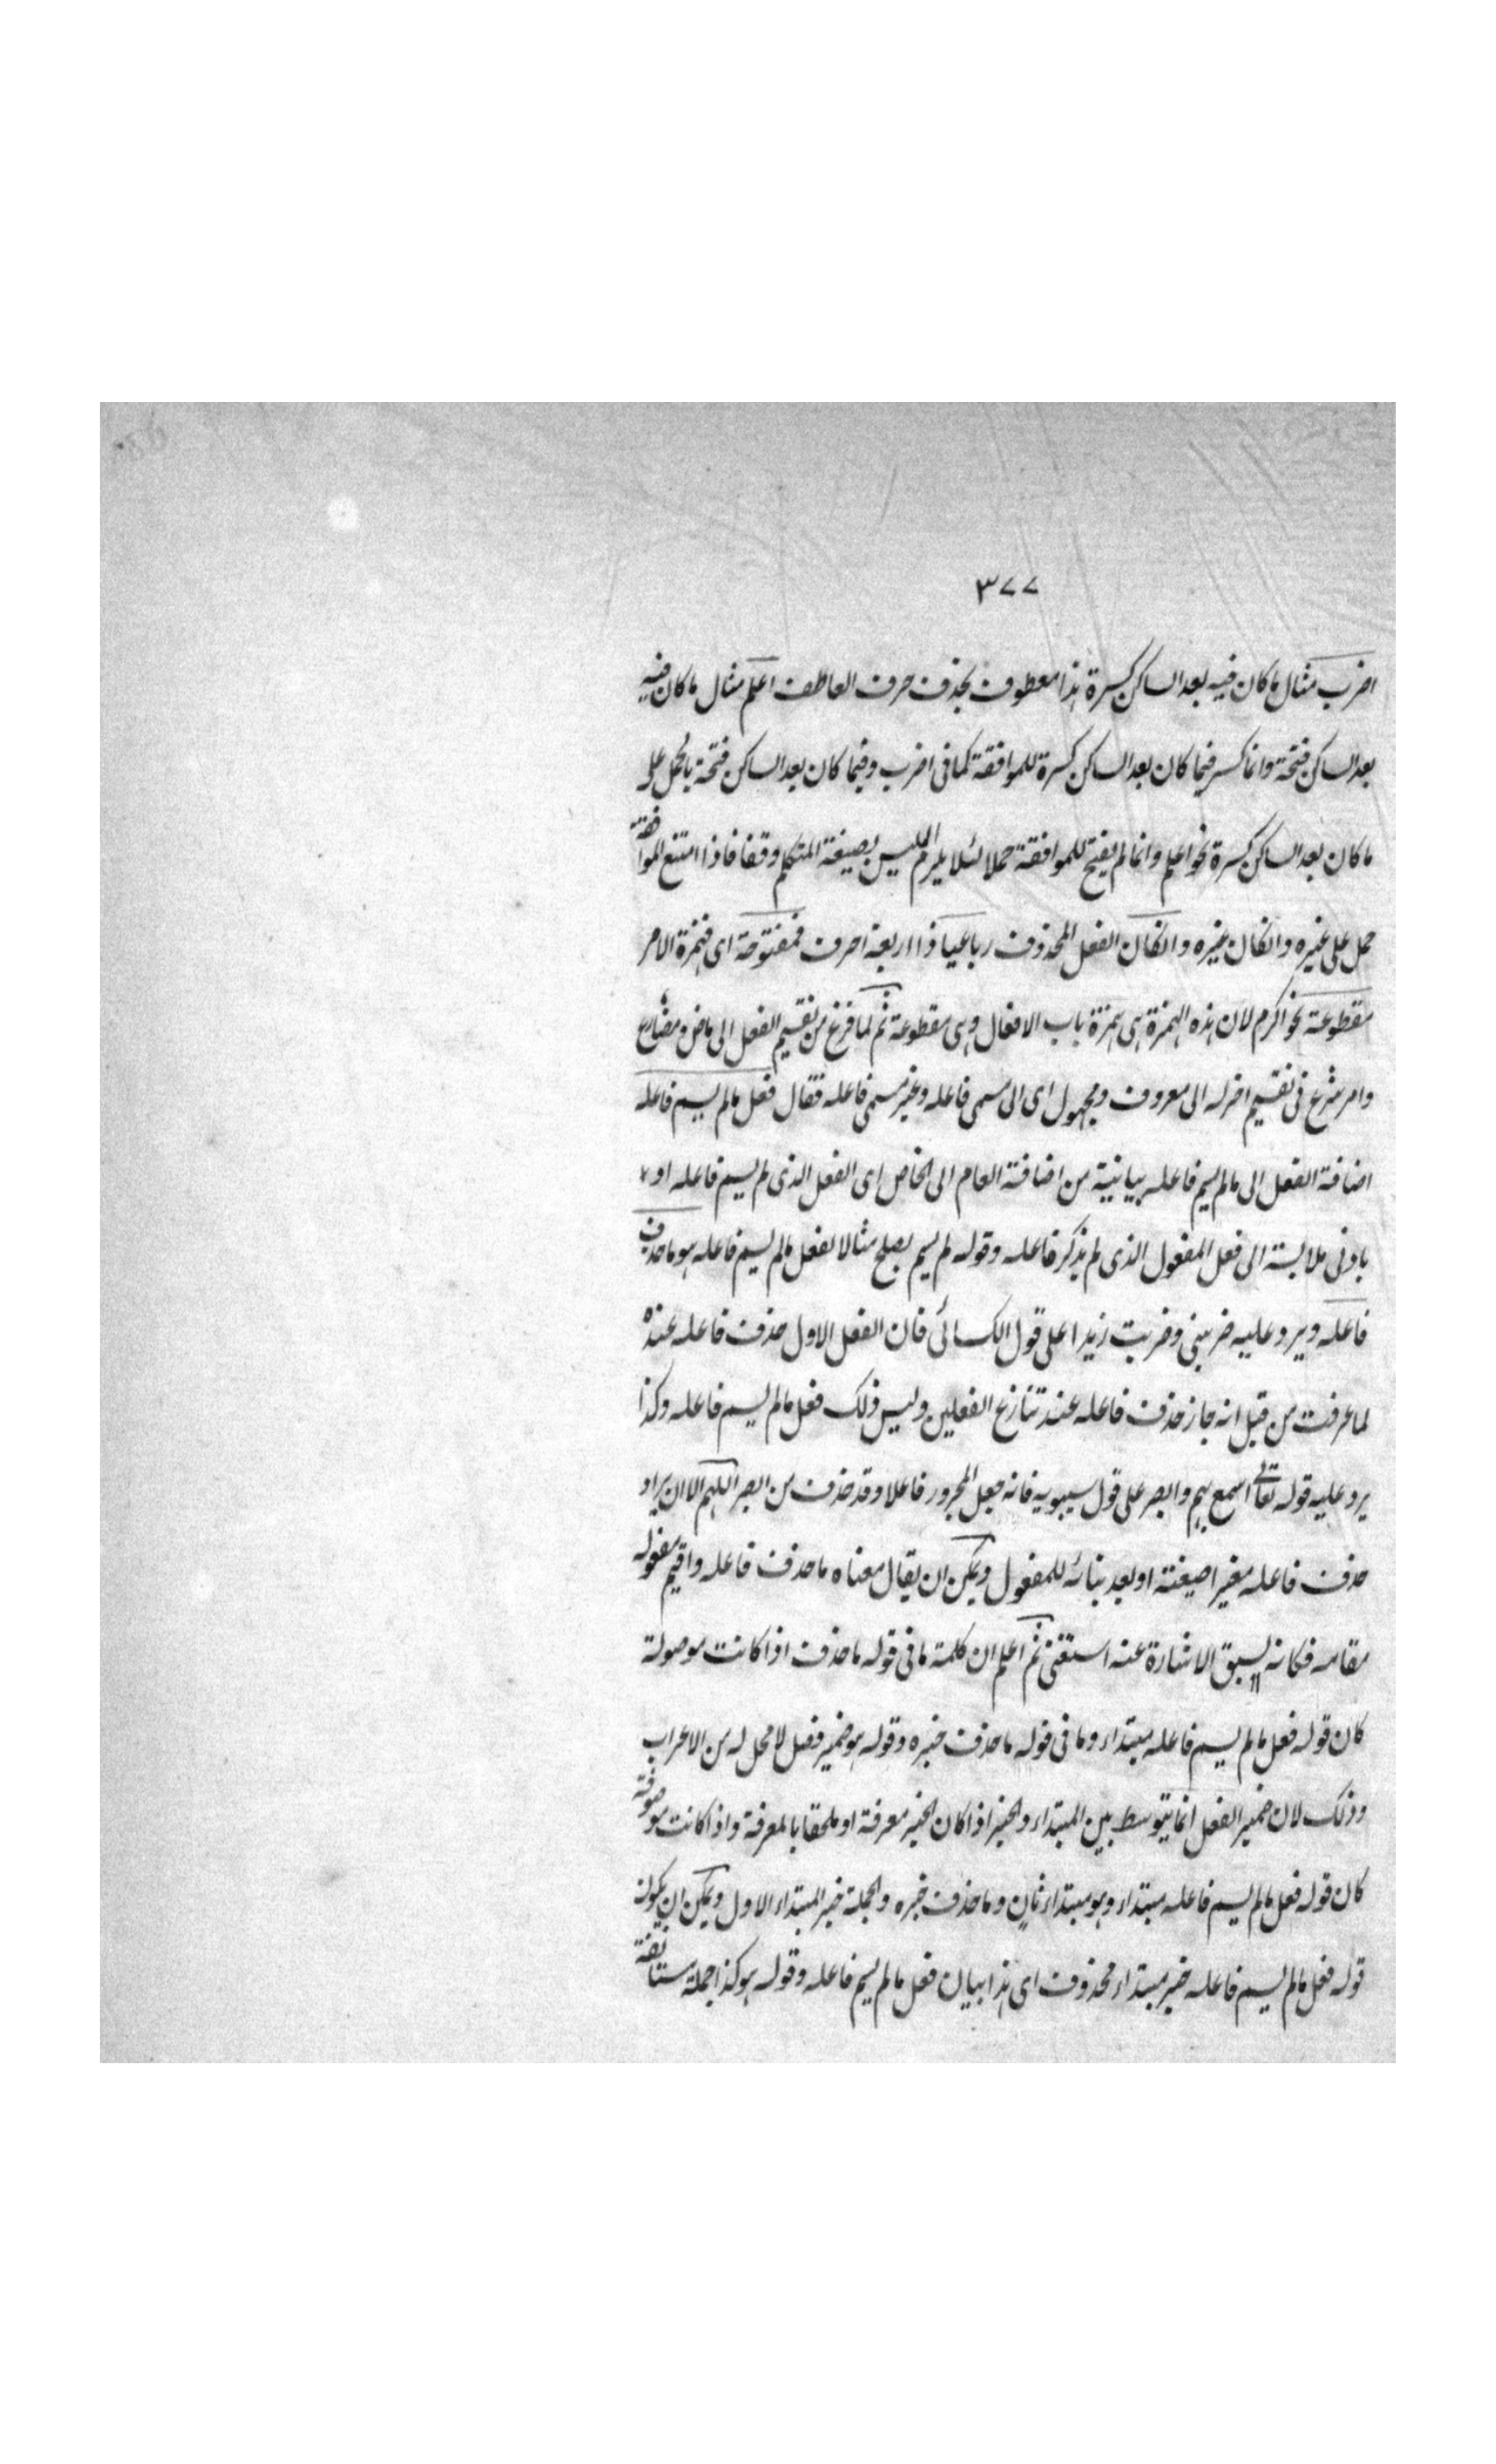 ٣٧٧
اضرب مثال ما كان فيه بعد الساكن كسرة هذا معطوف بحذف حرف العاطف اعلم مثال ما كان فيه
بعد الساكن فتحة وانما كسر فيما كان بعد الساكن كسرة للموافقة كما فى اضرب وفيما كان بعد الساكن فتحة بالحمل على
ما كان بعد الساكن كسرة نحو اعلم وانما لم يفتح للموافقة حملا لئلا يلزم اللبس بصيغة المتكلم وقفا فاذا امتنع الموافقة
حمل على غيره وانكان غيره وانكان الفعل المحذوف رباعيا ذا اربعة احرف فمفتوحة اى فهمزة الامر
مقطوعة نحو اكرم لان هذه الهمزة هى همزة باب الافعال وهى مقطوعة ثم لما فرغ من تقسيم الفعل الى ماض ومضارع
وامر شرع فى تقسيم اخر له الى معروف ومجهول اى الى مسمى فاعله وغير مسمى فاعله فقال فعل مالم يسم فاعله
اضافة الفعل الى مالم يسم فاعله بيانية من اضافة العام الى الخاص اى الفعل الذى لم يسم فاعله او
بادنى ملابسة الى فعل المفعول الذى لم يذكر فاعله وقوله لم يسم يصلح مثالا لفعل مالم يسم فاعله هو ماحذف
فاعله ويرد عليه ضربنى وضربت زيدا على قول الكسائى فان الفعل الاول حذف فاعله عنده
لما عرفت من قبل انه جاز حذف فاعله عند تنازع الفعلين وليس ذلك فعل مالم يسم فاعله وكذا
يرد عليه قوله تعالى اسمع بهم وابصر على قول سيبويه فانه جعل المجرور فاعلا وقد حذف من ابصر اللهم الا ان يراد
حذف فاعله مغيرا صيغته او بعد بنائه للمفعول ويمكن ان يقال معناه ما حذف فاعله واقيم مفعوله
مقامه فكانه لسبق الاشارة عنه استغنى ثم اعلم ان كلمة ما فى قوله ما حذف اذا كانت موصولة
كان قوله فعل مالم يسم فاعله مبتداء وما فى قوله ما حذف خبره وقوله هو ضمير فصل لا محل له من الاعراب
وذلك لان ضمير الفصل انما يتوسط بين المبتداء والخبر اذا كان الخبر معرفة او ملحقا بالمعرفة واذا كانت موصوفة
كان قوله فعل مالم يسم فاعله مبتداء وهو مبتداء ثان وما حذف خبره والجملة خبر المبتداء الاول ويمكن ان يكون
قوله فعل مالم يسم فاعله خبر مبتداء محذوف اى هذا بيان فعل مالم يسم فاعله وقوله هو كذا جملة مستانفة